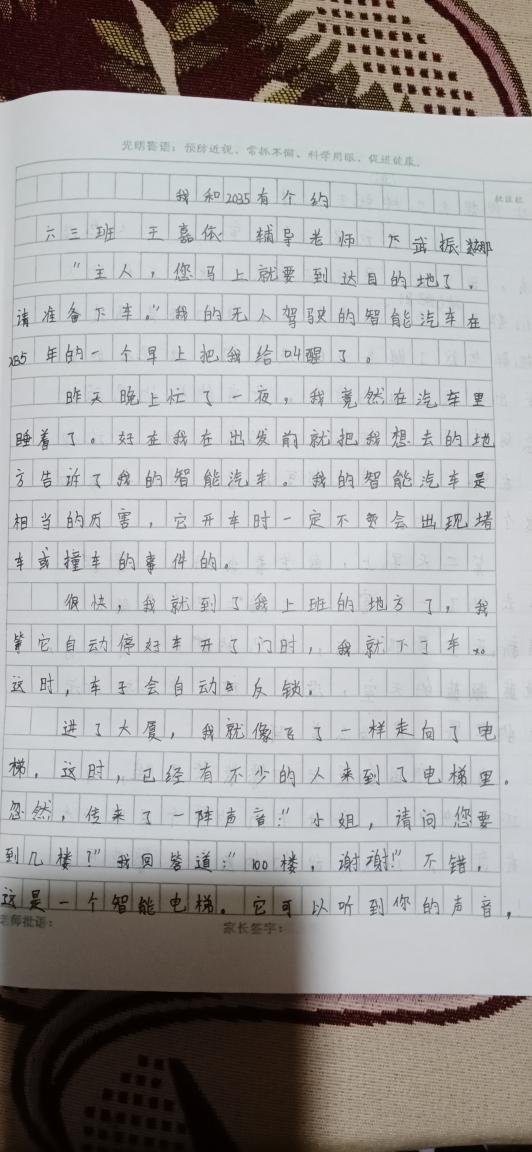 光明寄语：预防近视、常抓不懈、科学用眼、促进健康。
我和2035有个约
六三班 王嘉依 辅导老师 武振
“主人，您马上就要到达目的地了，
请准备下车。”我的无人驾驶的智能汽车在
2035年的一个早上把我给叫醒了。
昨天晚上忙了一夜，我竟然在汽车里
睡着了。好在我在出发前就把我想去的地
方告诉了我的智能汽车。我的智能汽车是
相当的厉害，它开车时一定不会出现堵
车或撞车的事件的。
很快，我就到了我上班的地方了，我
等它自动停好车开了门时，我就下了车。
这时，车子会自动反锁。
进了大厦，我就像飞了一样走向了电
梯。这时，已经有不少的人来到了电梯里。
忽然，传来了一阵声音：“小姐，请问您要
到几楼？”我回答道：“100楼，谢谢！”不错，
这是一个智能电梯。它可以听到你的声音，
老师批语： 家长签字：